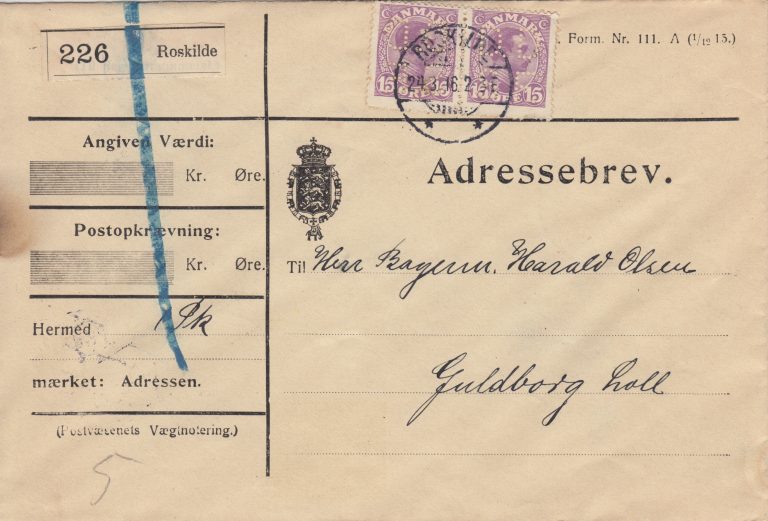 226 Roskilde
DANMARK DANMARK
15 ØRE ØRE 15
ROSKILDE
24.3.16. 2-3 E
Form. Nr. 111. A (1/12 15.)
Angiven Værdi:
Kr. Øre.
Postopkrævning:
Kr. Øre.
Hermed Pk
mærket: Adressen.
(Postvæsenets Vægtnotering.)
5
Adressebrev.
Til Herr Bagerm. Harald Olsen
Guldborg Loll